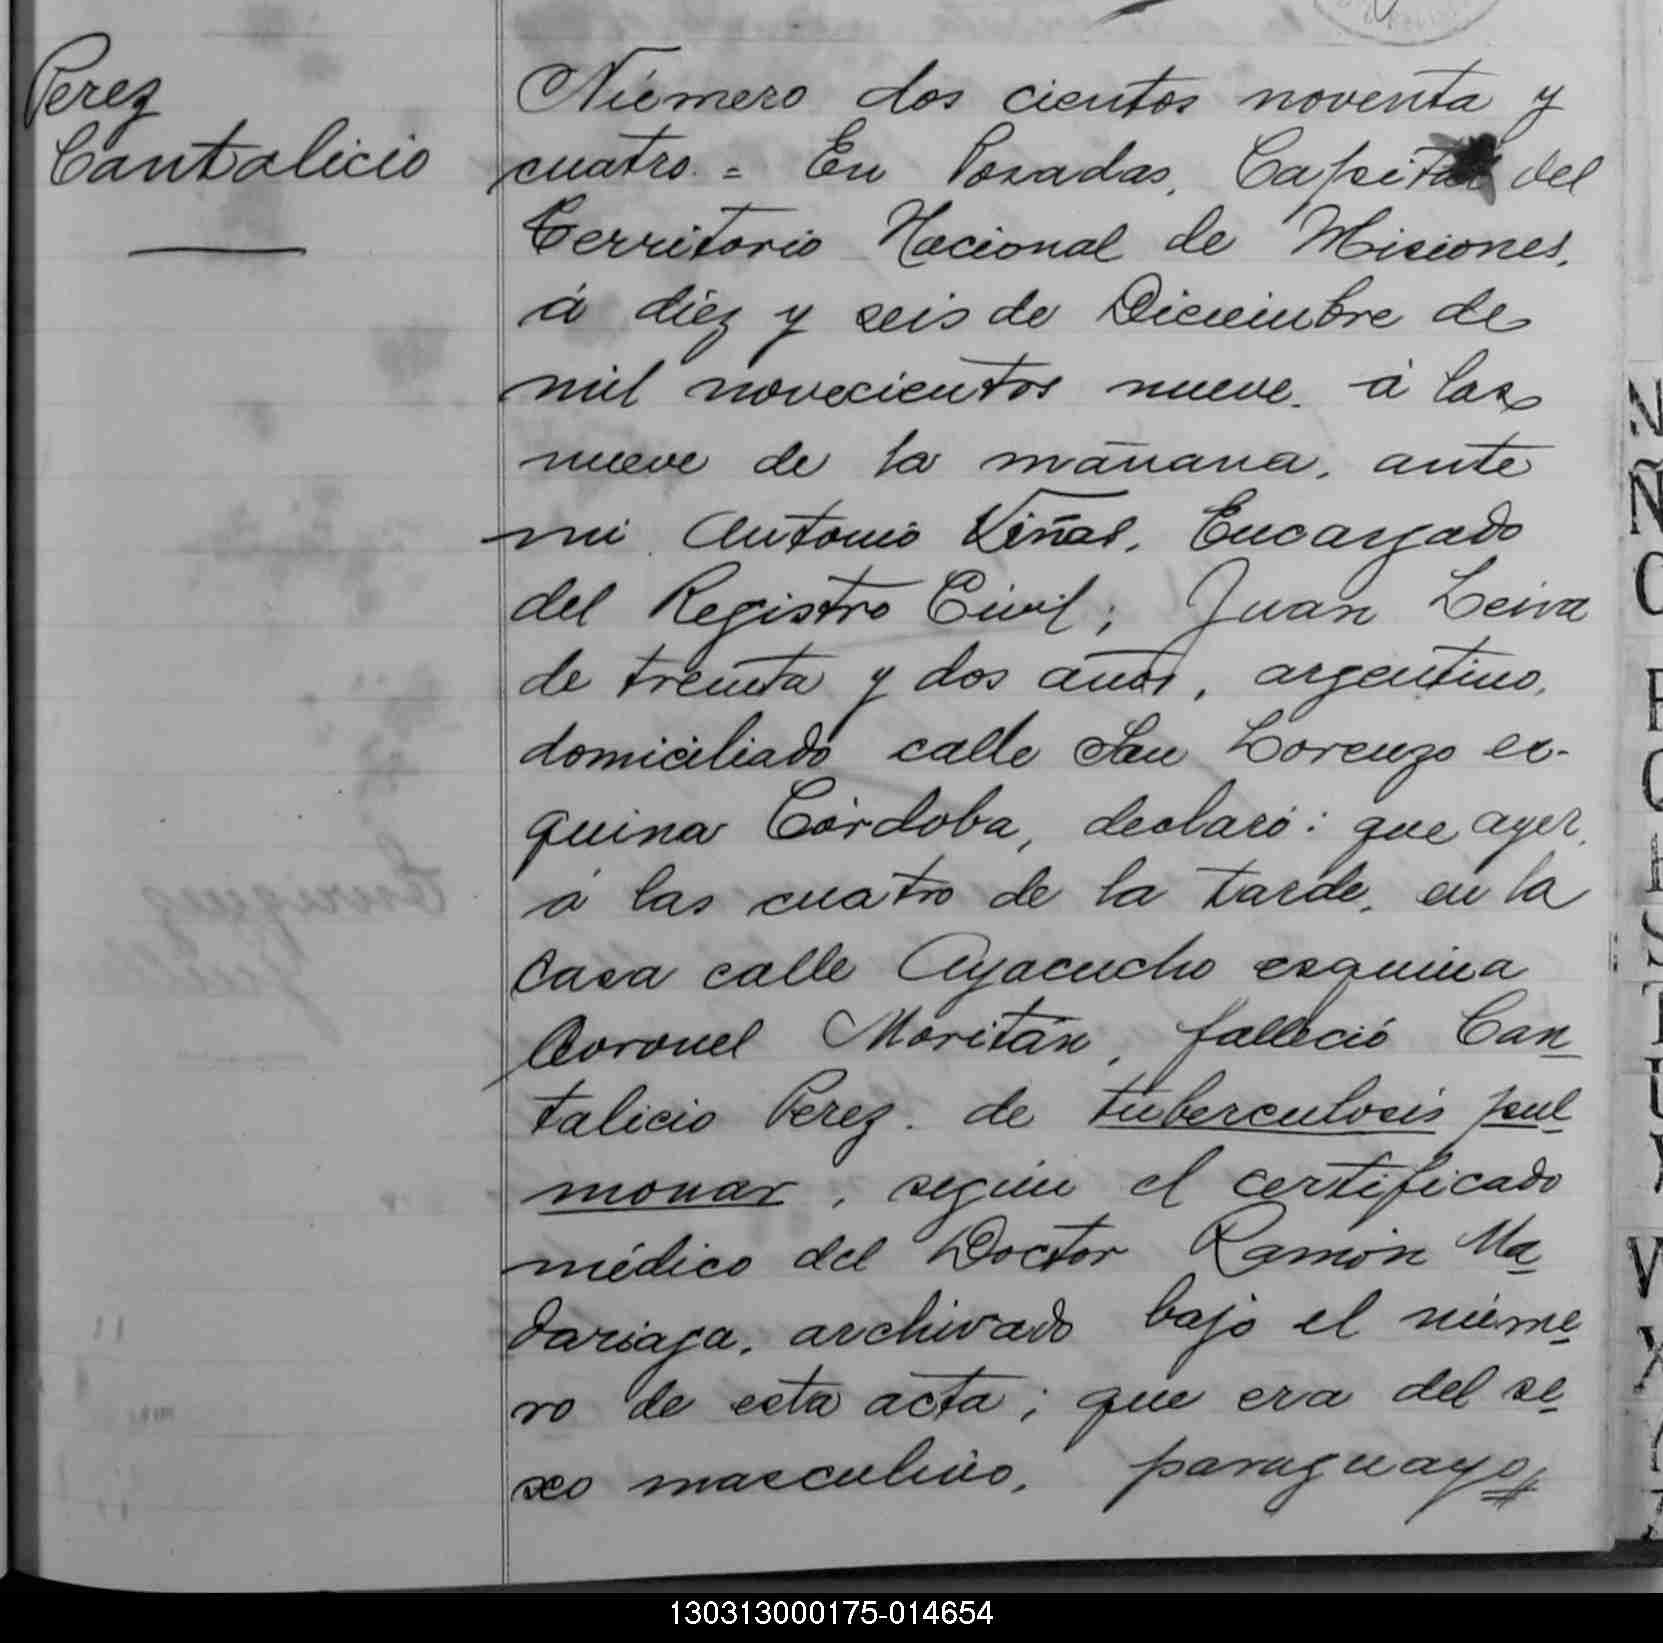 Perez
Cantalicio
Número dos cientos noventa y
cuatro. = En Posadas, Capital del
Territorio Nacional de Misiones,
á diez y seis de Diciembre de
mil novecientos nueve. á las
nueve de la mañana, ante
mi Antonio Viñas, Encargado
del Registro Civil; Juan Leiva
de treinta y dos años, argentino,
domiciliado calle San Lorenzo es-
quina Córdoba, declaró: que ayer,
á las cuatro de la tarde, en la
casa calle Ayacucho esquina
Coronel Moritán, falleció Can-
talicio Perez. de tuberculosis pul-
monar, según el certificado
médico del Doctor Ramón Ma-
dariaga, archivado bajo el núme-
ro de esta acta; que era del se-
xo masculino, paraguayo,
N
Ñ
O
P
Q
R
S
T
U
Y
V
X
130313000175-014654